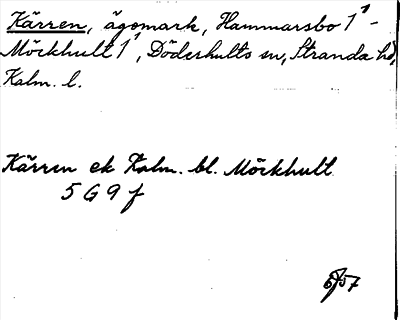 Kärren, ägomark, Hammarsbo 1¹ -
Möckhult 1¹, Döderhults sn, Stranda hd,
Kalm. l.
Kärren ek Kalm. bl. Möckhult
5 G 9 f